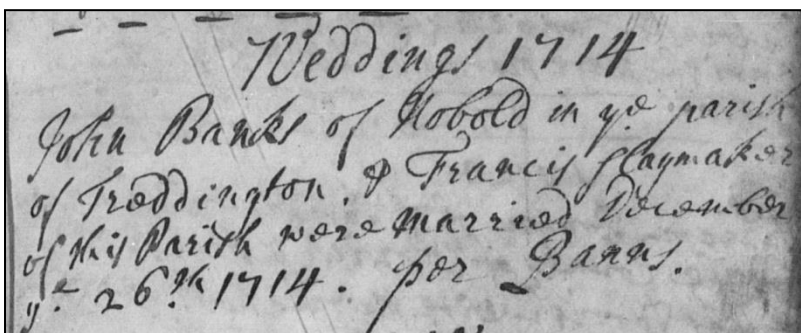 Weddings 1714
John Banks of Nobold in ye parish
of Treddington. & Francis Slaymaker
of this Parish were married December
ye 26th 1714. per Banns.